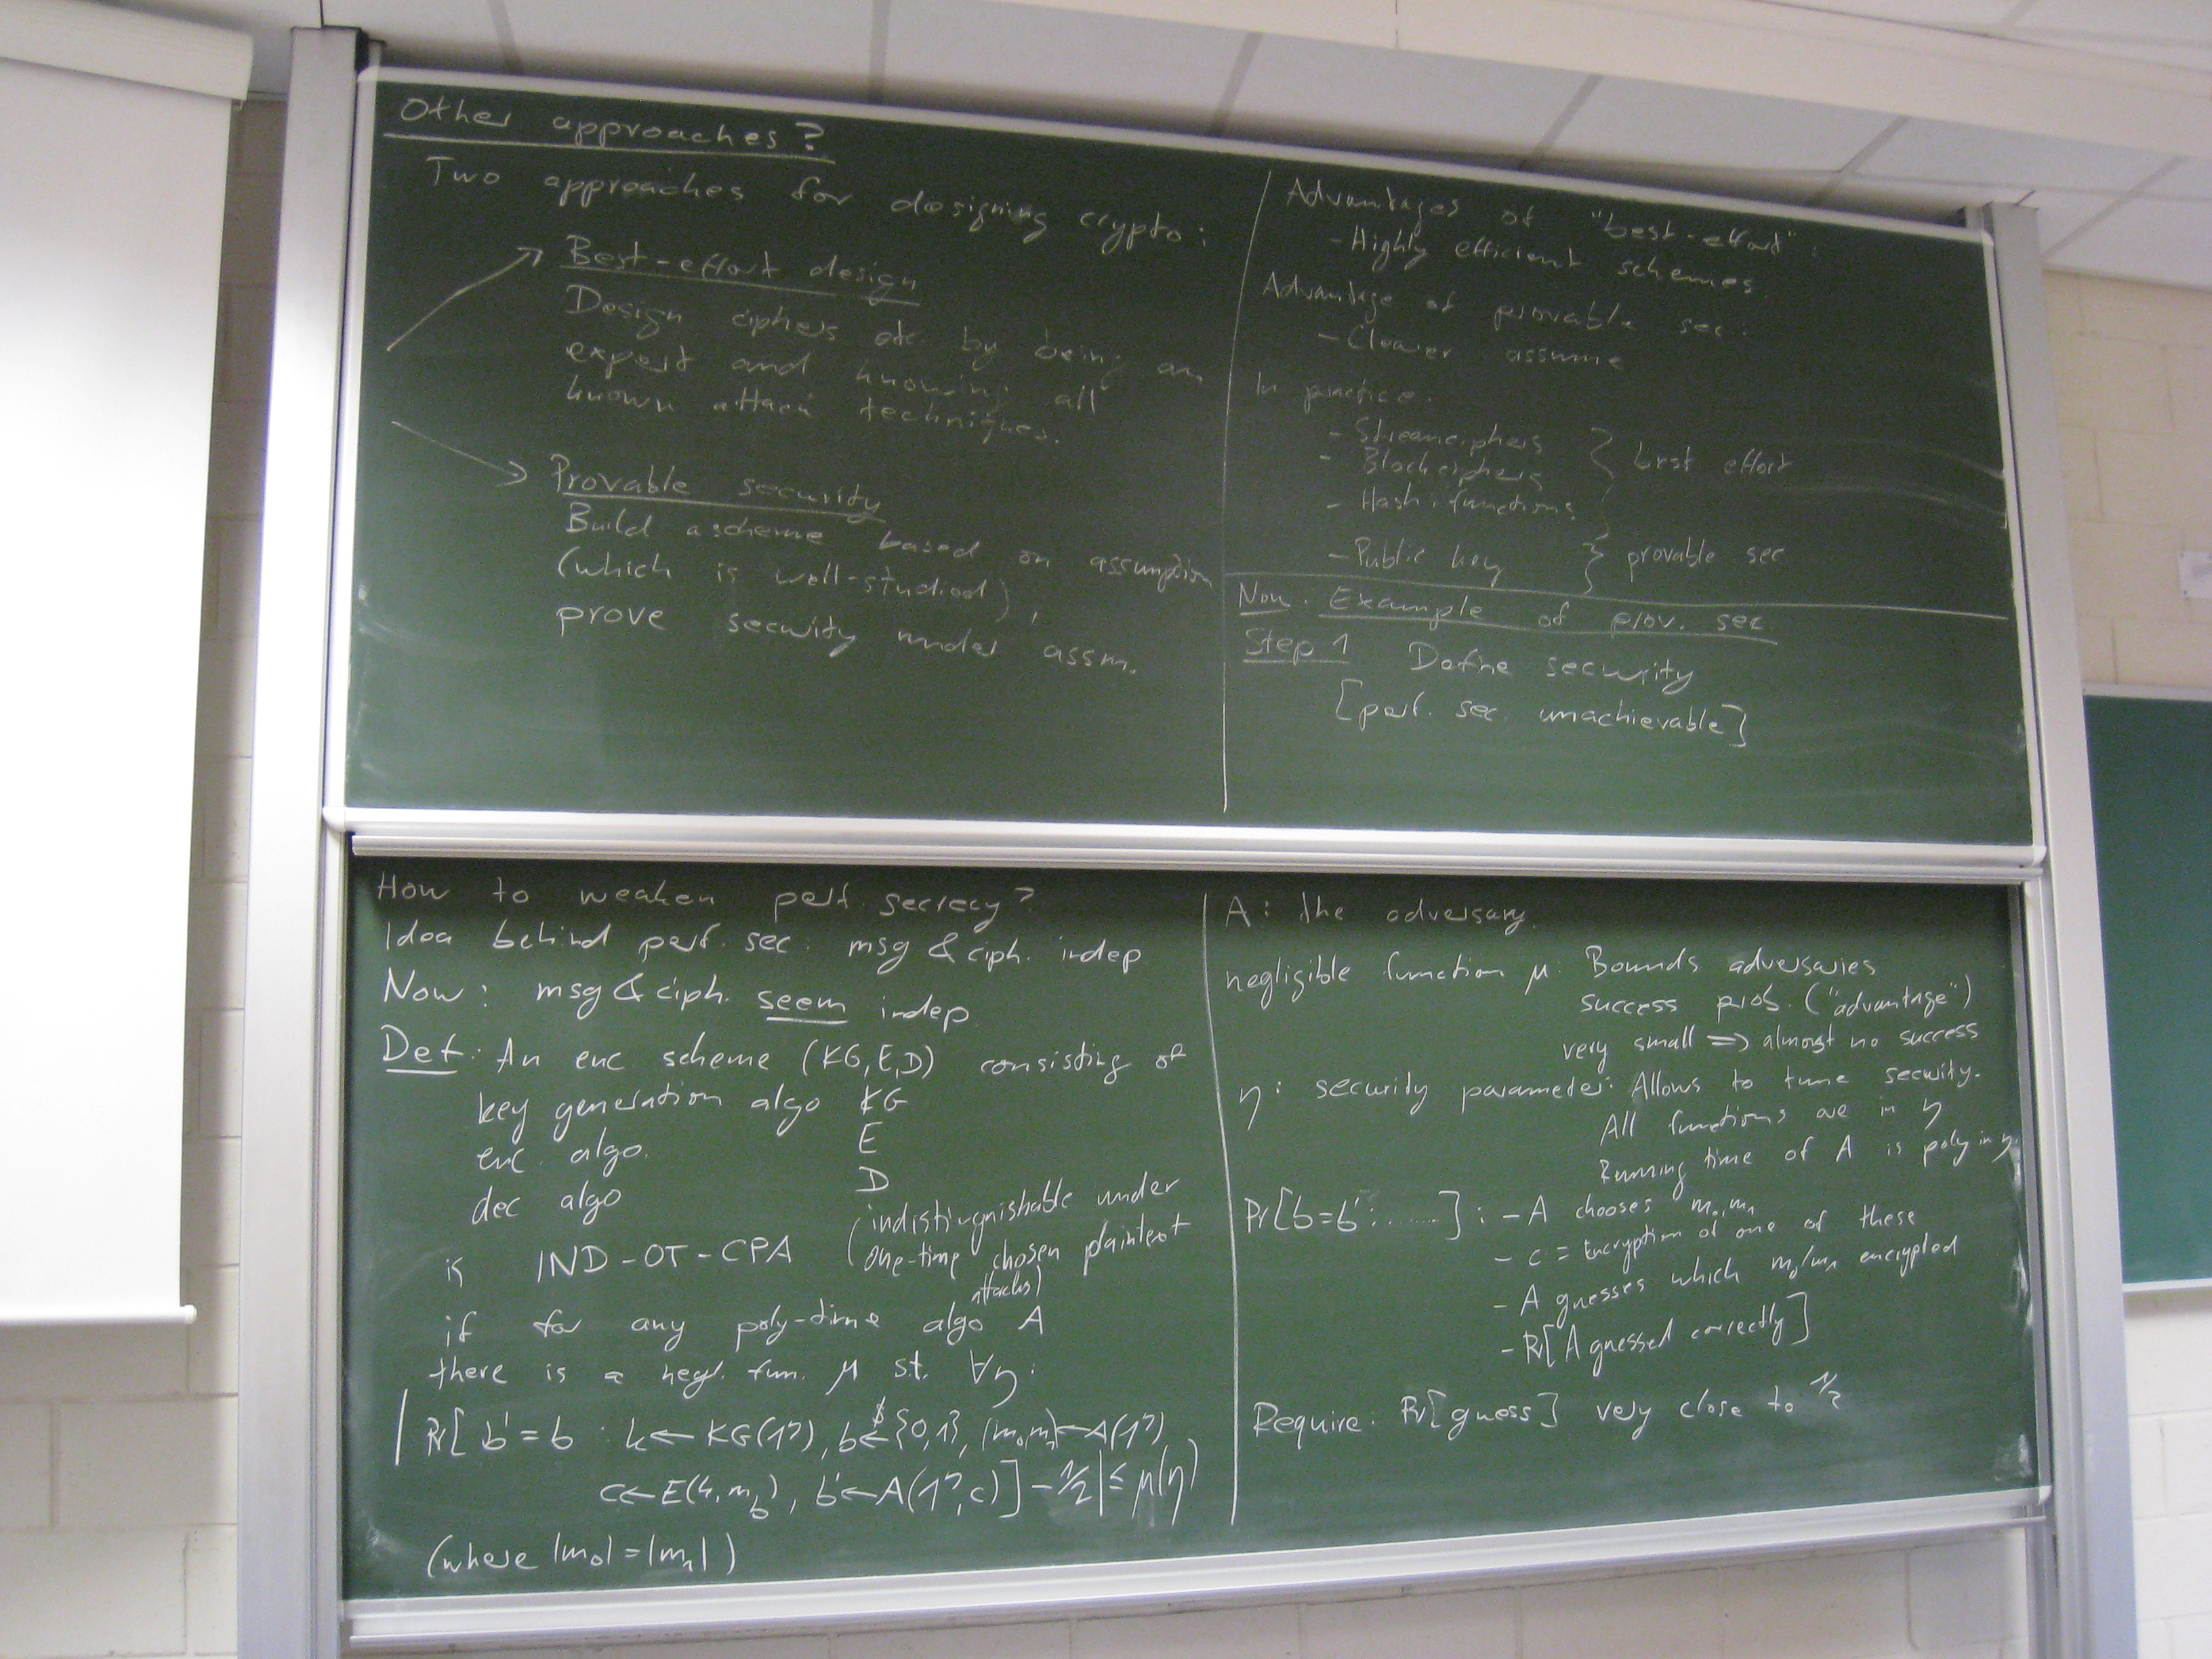 Other approaches?
Two approaches for designing crypto:
Best-effort design
Design ciphers etc. by being an
expert and knowing all
known attack techniques.
Provable security
Build a scheme based on assumption
(which is well-studied),
prove security under assm.
Advantages of "best-effort":
- Highly efficient schemes.
Advantage of provable sec:
- Clearer assume
In practice:
- Streamciphers
- Blockciphers } best effort
- Hash functions
- Public key } provable sec
Now: Example of prov. sec
Step 1 Define security
[perf. sec. unachievable]
How to weaken perf. secrecy?
Idea behind perf. sec: msg & ciph. indep
Now: msg & ciph. seem indep
Def: An enc scheme (KG,E,D) consisting of
key generation algo KG
enc. algo. E
dec algo D
is IND-OT-CPA (indistinguishable under
one-time chosen plaintext
attacks)
if for any poly-time algo A
there is a negl. fun. μ st. ∀η:
|Pr[b'=b : k←KG(1^η), b←$ {0,1}, (m₀,m₁)←A(1^η)
c←E(k,m_b), b'←A(1^η,c)] - 1/2| ≤ μ(η)
(where |m₀| = |m₁|)
A: the adversary
negligible function μ: Bounds adversaries
success prob. ("advantage")
very small ⇒ almost no success
η: security parameter: Allows to tune security.
All functions are in η
Running time of A is poly in η
Pr[b=b':......] : - A chooses m₀,m₁
- c = Encryption of one of these
- A guesses which m₀/m₁ encrypted
- Pr[A guessed correctly]
Require: Pr[guess] very close to 1/2